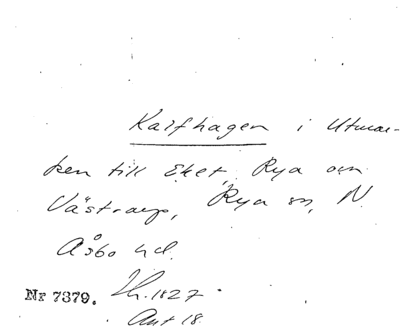 Kalfhagen i Utmar-
ken till Eket, Rya och
Västraup, Rya sn, N
Åsbo hd.
Nr 7379. Lh. 1827
Akt 18.